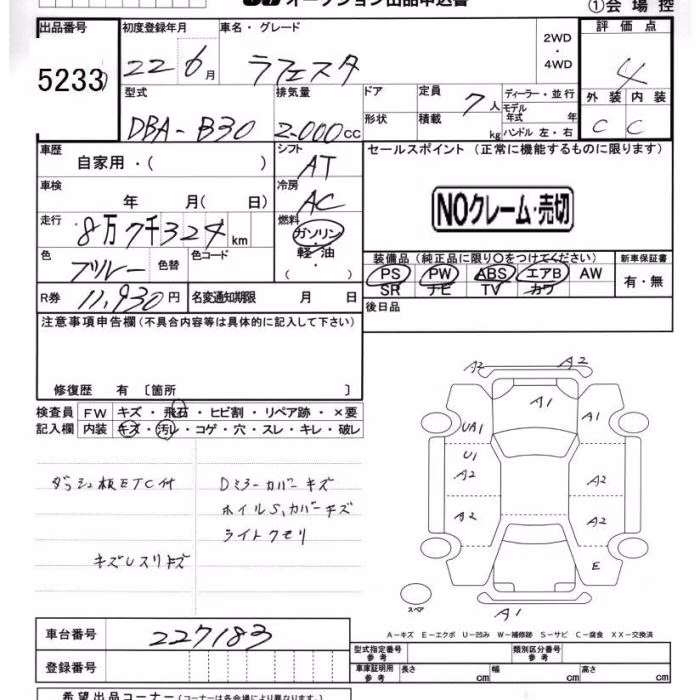 オークション出品申込書
①会場控
出品番号 初度登録年月 車名・グレード 2WD・4WD 評価点
5233 22 6月 ラフェスタ 4
型式 排気量 ドア 定員 7人 ディーラー・並行 外装 内装
モデル年式 年
DBA-B30 2-000cc 形状 積載 kg ハンドル 左・右 C C
車歴 シフト セールスポイント (正常に機能するものに限ります)
自家用・( ) AT
車検 冷房
年 月( 日) AC NOクレーム・売切
走行 燃料
8万7千324km ガソリン・軽油
色 色替 色コード ( ・ ) 装備品 (純正品に限り〇をつけてください) 新車保証書
ブルー PS PW ABS エアB AW 有・無
SR ナビ TV カワ
R券 11,930円 名変通知期限 月 日 後日品
注意事項申告欄 (不具合内容等は具体的に記入して下さい)
修復歴 有 〔箇所 〕
検査員 FW キズ・飛石・ヒビ割・リペア跡・×要
記入欄 内装 キズ・汚レ・コゲ・穴・スレ・キレ・破レ
A2 A2
A1 A1
UA1
U1
A2 A2
A2 A2
E
スペア A1
ダッシュ板ETC付 Dミラーカバーキズ
ホイルS,カバーキズ
ライトクモリ
キズUスリキズ
A-キズ E-エクボ U-凹み W-補修跡 S-サビ C-腐食 XX-交換済
車台番号 227183 型式指定番号 参考 類別区分番号 参考
登録番号 車庫証明用 参考 長さ cm 幅 cm 高さ cm
希望出品コーナー (コーナーは各会場により異なります。)